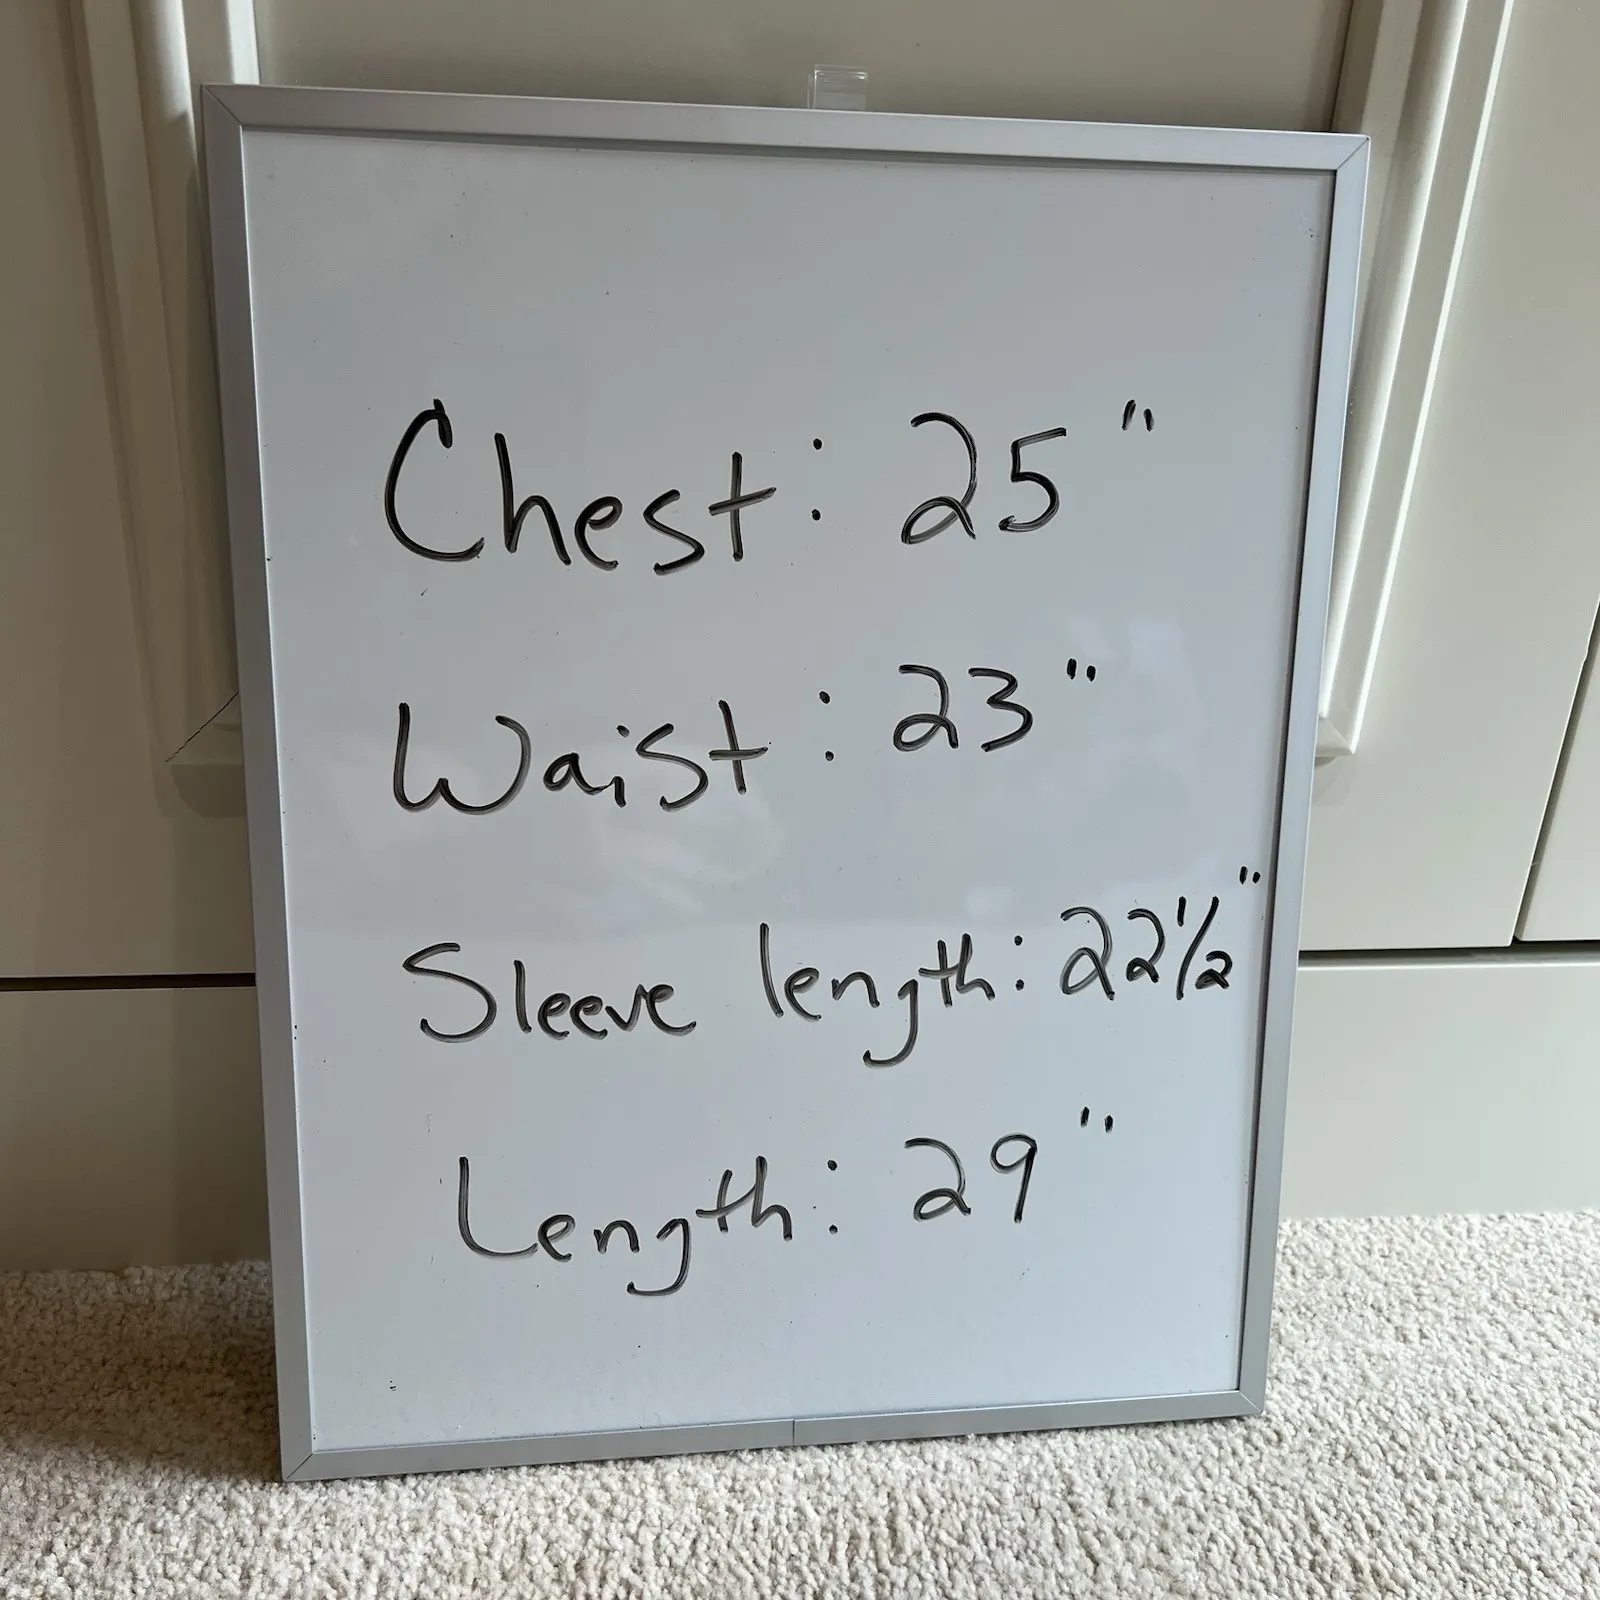 Chest: 25"
Waist: 23"
Sleeve length: 22 1/2"
Length: 29"